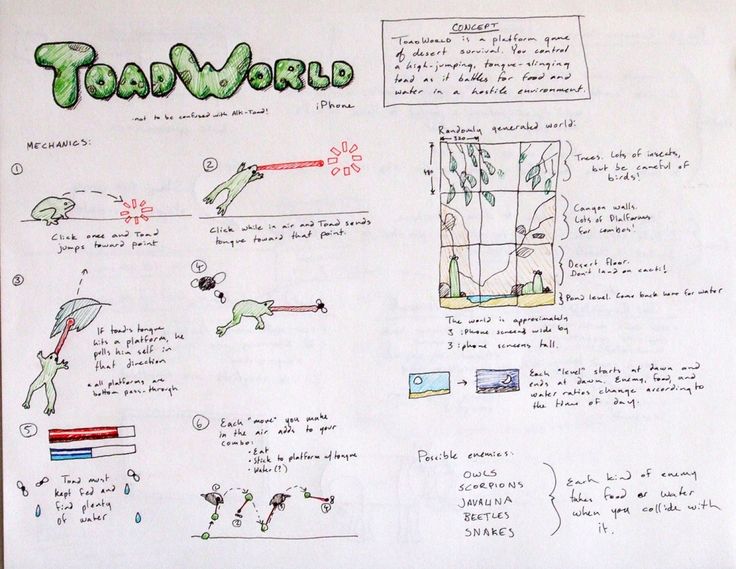 TOADWORLD
iPhone
-not to be confused with Alti-Toad!
CONCEPT
TOADWORLD is a platform game
of desert survival. You control
a high-jumping, tongue-slinging
toad as it battles for food and
water in a hostile environment.
MECHANICS:
1
Click once and Toad
jumps toward point
2
Click while in air and Toad sends
tongue toward that point.
3
If toad's tongue
hits a platform, he
pulls him self in
that direction
* all platforms are
bottom pass-through
4
5
Toad must
kept fed and
find plenty
of water
6
Each "move" you make
in the air adds to your
combo:
• Eat
• Stick to platform w/ tongue
• Water (?)
1
2
3
4
Randomly generated world:
320
480
Trees. Lots of insects,
but be careful of
birds!
Canyon walls.
Lots of Platforms
for combos!
Desert floor.
Don't land on cacti!
Pond level. Come back here for water
The world is approximately
3 iPhone screens wide by
3 iphone screens tall.
Each "level" starts at dawn and
ends at dawn. Enemy, food, and
water ratios change according to
the time of day.
Possible enemies:
OWLS
SCORPIONS
JAVALINA
BEETLES
SNAKES
Each kind of enemy
takes food or water
when you collide with
it.